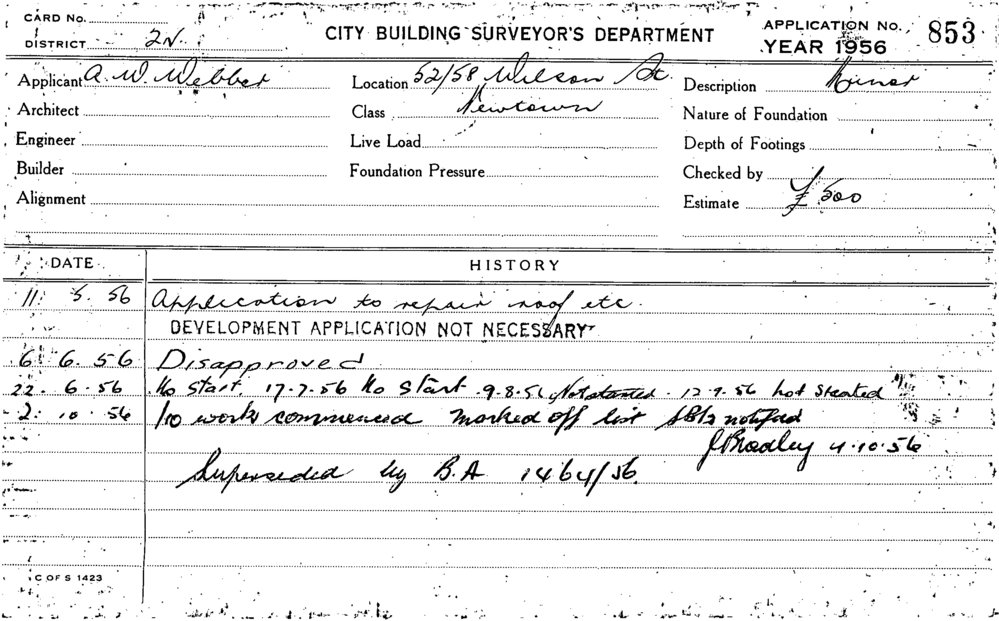 CARD No.
DISTRICT 2N.
CITY BUILDING SURVEYOR'S DEPARTMENT
APPLICATION No. 853
YEAR 1956
Applicant A. W. Webber
Location 52/58 Wilson St.
Description Minor
Architect
Class Newtown
Nature of Foundation
Engineer
Live Load
Depth of Footings
Builder
Foundation Pressure
Checked by
Alignment
Estimate £500
DATE HISTORY
11. 5. 56 Application to repair roof etc.
DEVELOPMENT APPLICATION NOT NECESSARY
6. 6. 56 Disapproved
22. 6. 56 No Start. 17.7.56 No Start 9.8.56 Not started. 12.9.56 not started
2. 10. 56 No work commenced marked off list notified
J Bradley 4.10.56
Superseded by B.A 1464/56.
C OF S 1423